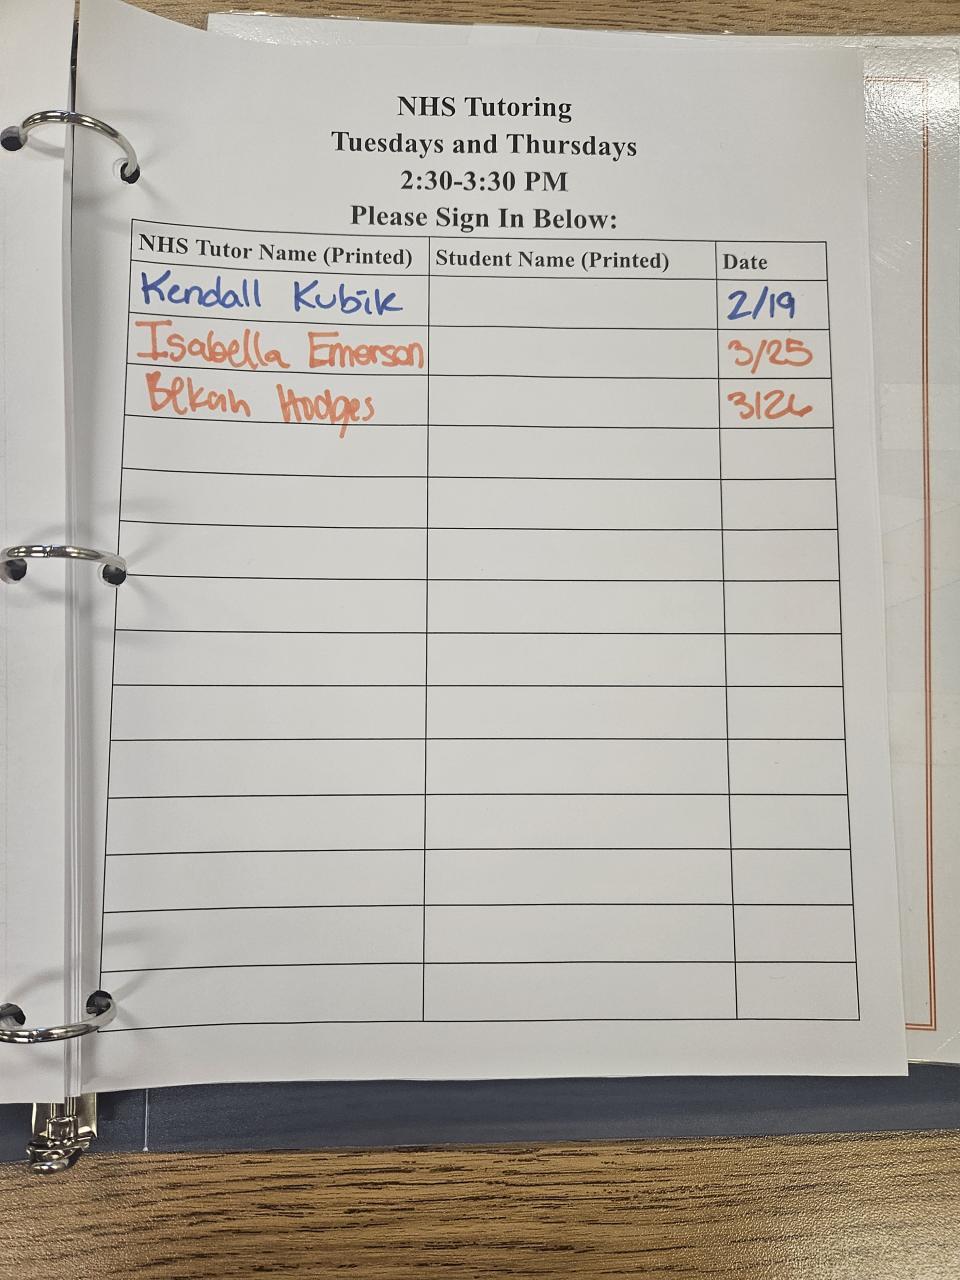 NHS Tutoring
Tuesdays and Thursdays
2:30-3:30 PM
Please Sign In Below:
NHS Tutor Name (Printed) Student Name (Printed) Date
Kendall Kubik 2/19
Isabella Emerson 3/25
Bekah Hodges 3/26